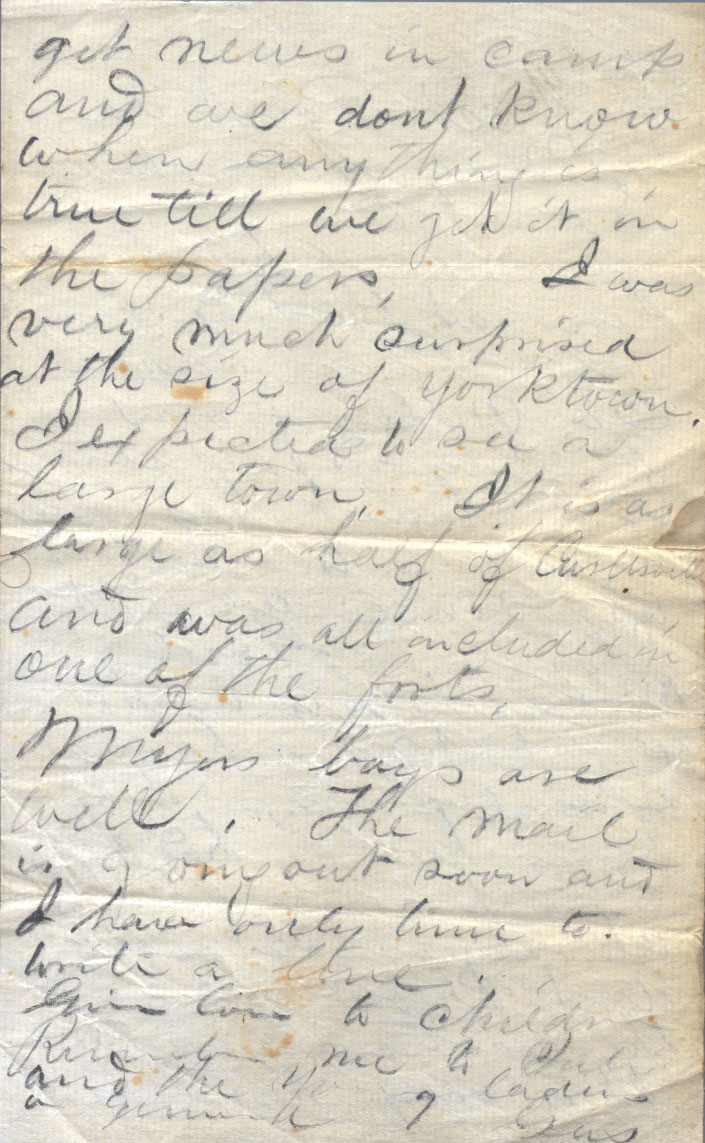 get news in camp
and we dont know
when any thing is
true till we get it in
the papers, I was
very much surprised
at the size of Yorktown.
I expected to see a
large town, It is as
large as half of
and was all included in
one of the forts,
Myers boys are
well. The mail
is going out soon and
I have only time to.
write a line.
Give love to children
Remember me to
and the Young Ladies